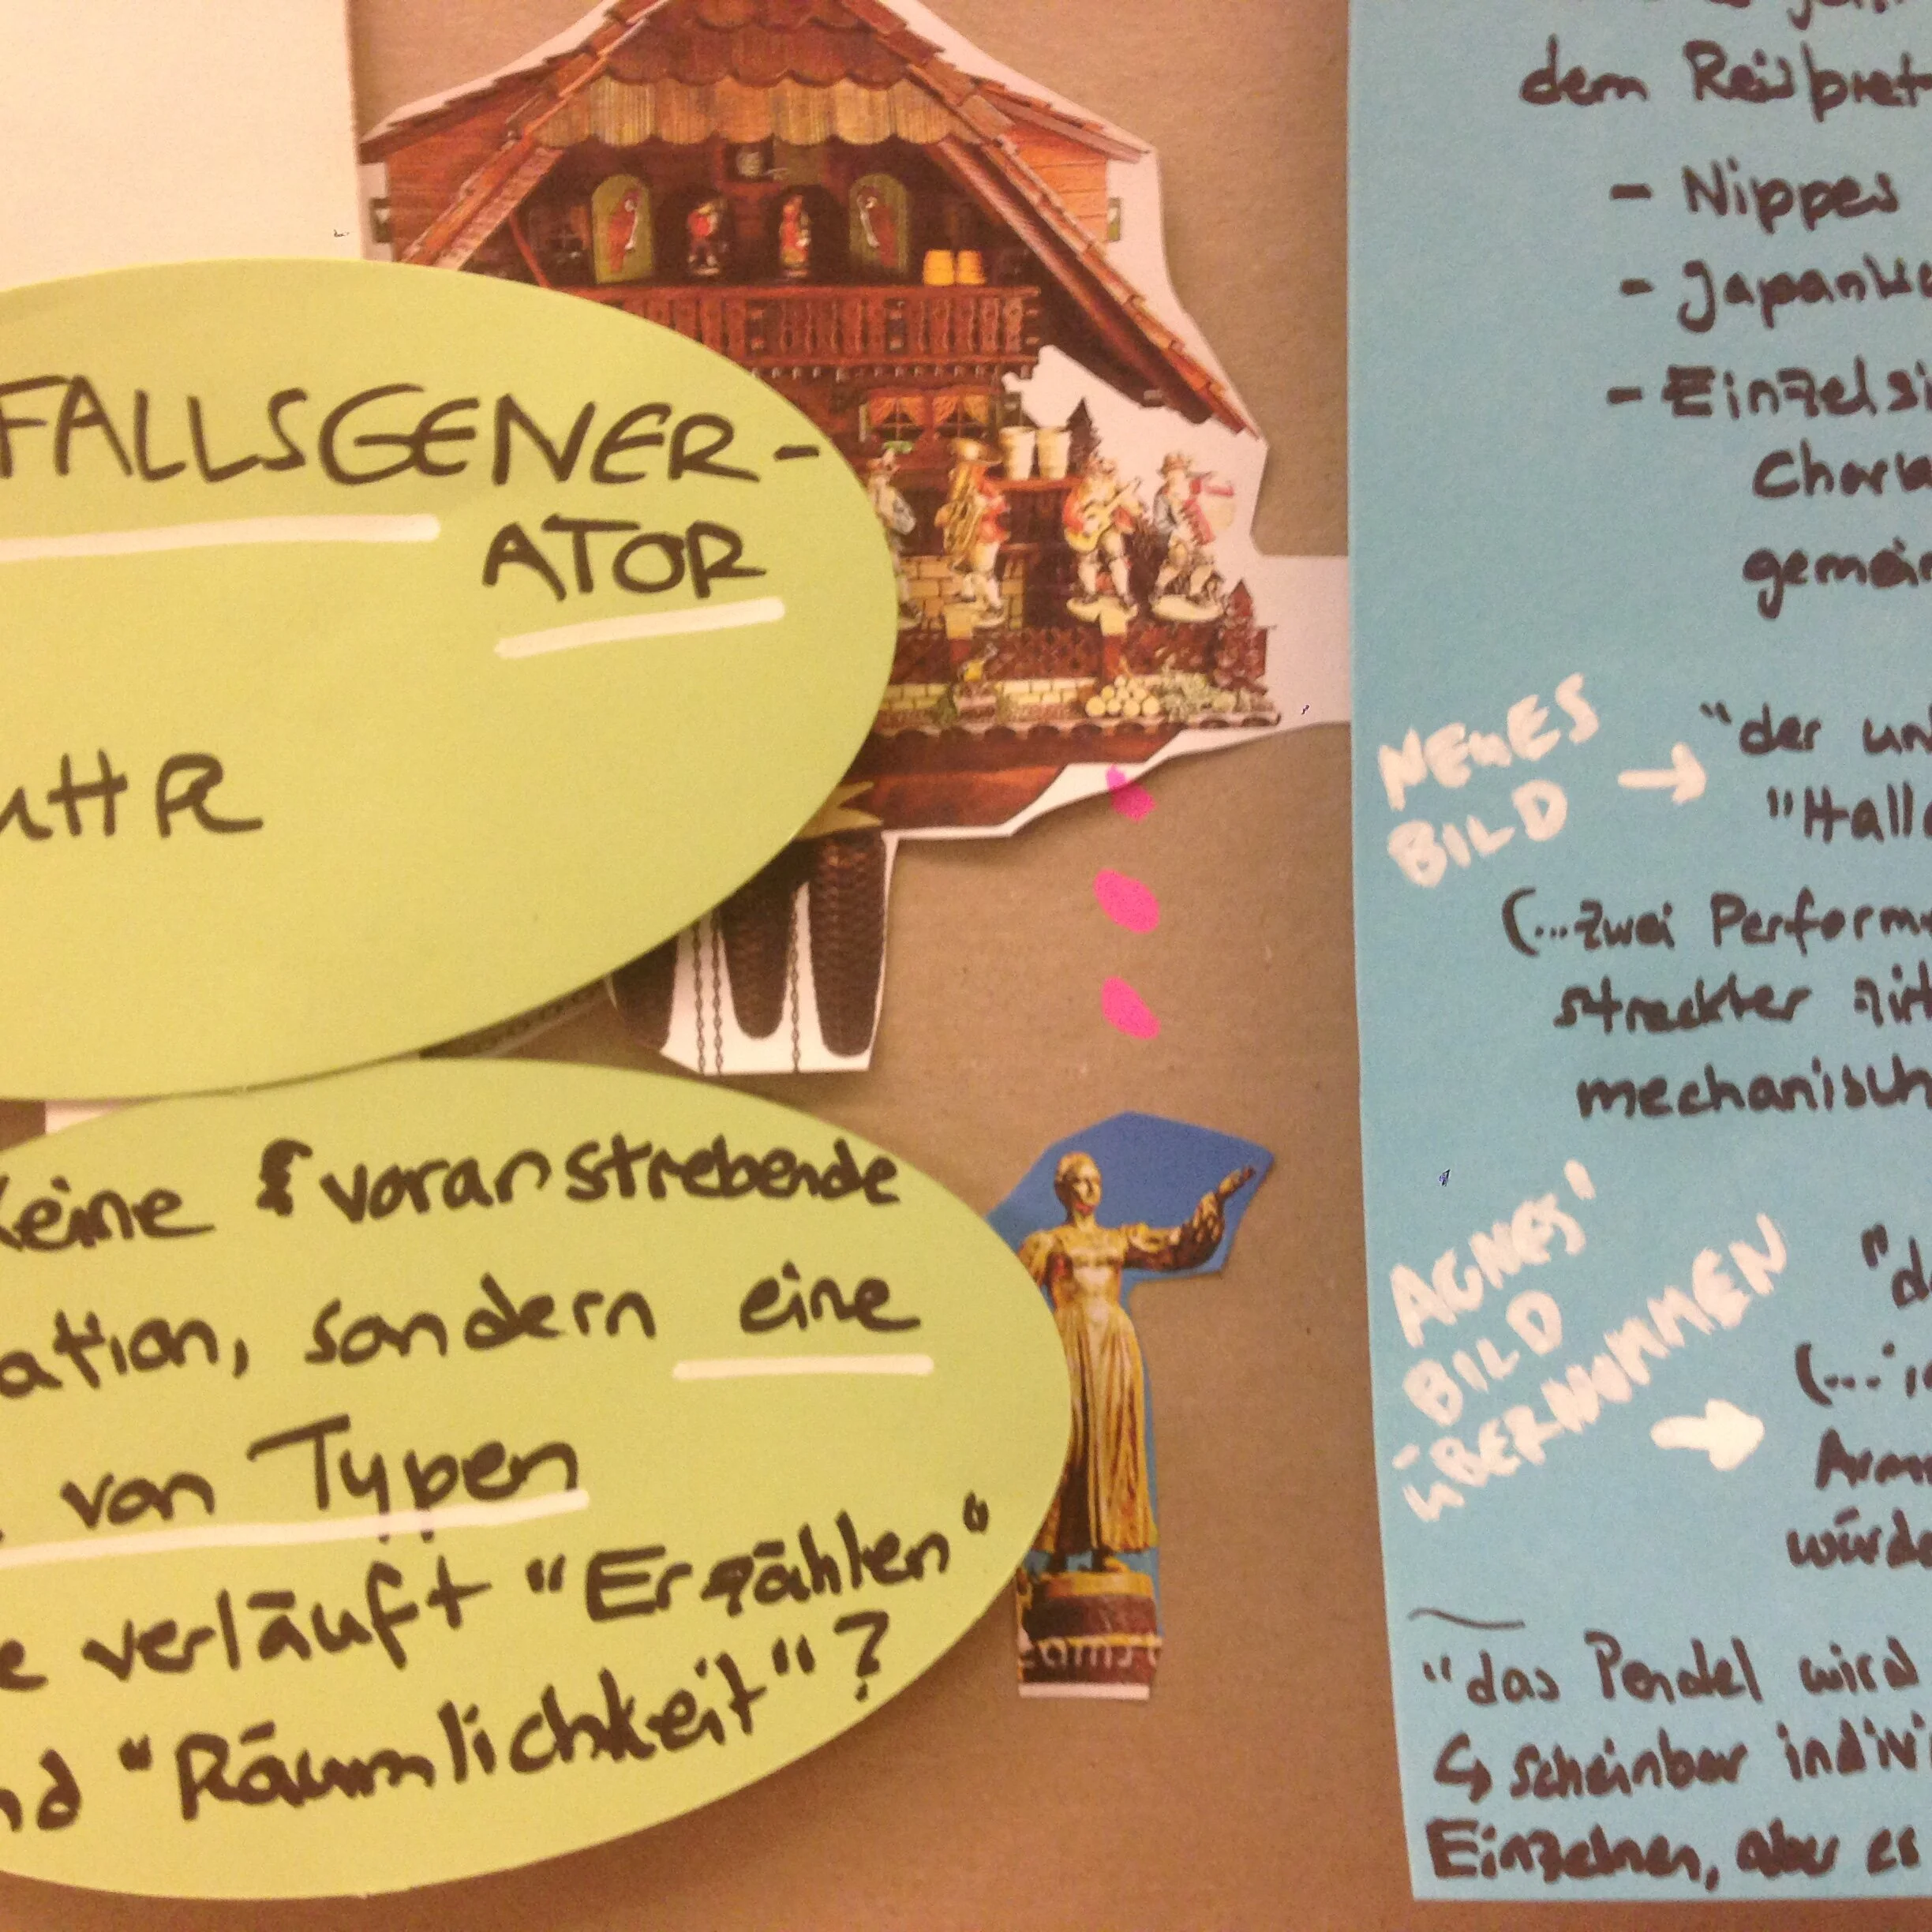 FALLSGENER-
ATOR
UHR
keine voranstrebende
ation, sondern eine
von Typen
e verläuft "Erzählen"
nd "Räumlichkeit"?
eams
dem Reisbret
- Nippes
- Japank
- Einzelsi
gemein
NEUES
BILD →
"der un
"Hall
(...zwei Perform
streckter
mechanisch
AGNES'
BILD
ÜBERNOMMEN
"d
(...i
Arm
würde
"das Pendel wird
↳ scheinbar indivi
Einzelnen, aber es